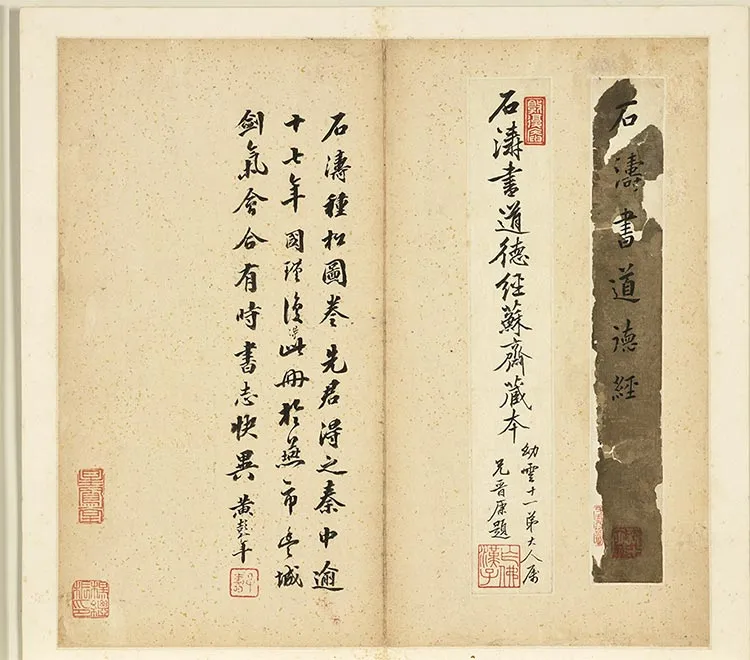 石濤書道德經
石濤書道德經蘇齋藏本
幼雲十一弟大人属
兄晉原題
石濤種松圖卷先君得之秦中逾
十七年國瑾復得此冊於燕市豐城
劍氣會合有時書志快異 黃彭年